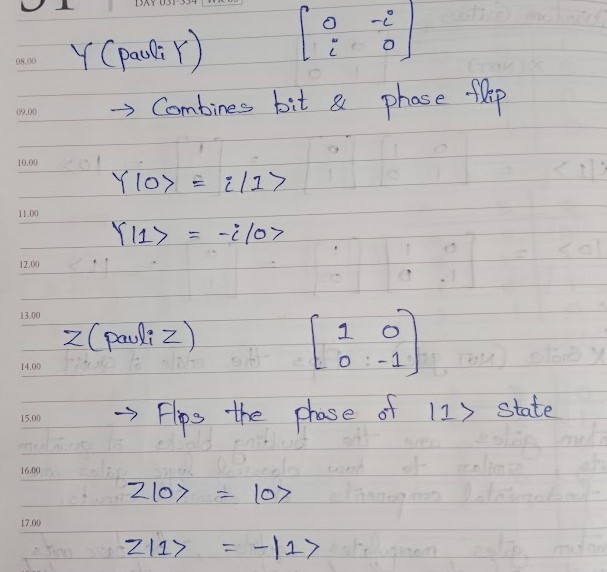 DAY 031-334
08.00 Y (pauli Y) [ 0 -i
i 0 ]
09.00 → Combines bit & phase flip
10.00
Y|0> = i|1>
11.00
Y|1> = -i|0>
12.00
13.00
Z (pauli Z) [ 1 0
0 : -1 ]
14.00
15.00 → Flips the phase of |1> state
16.00
Z|0> = |0>
17.00
Z|1> = -|1>